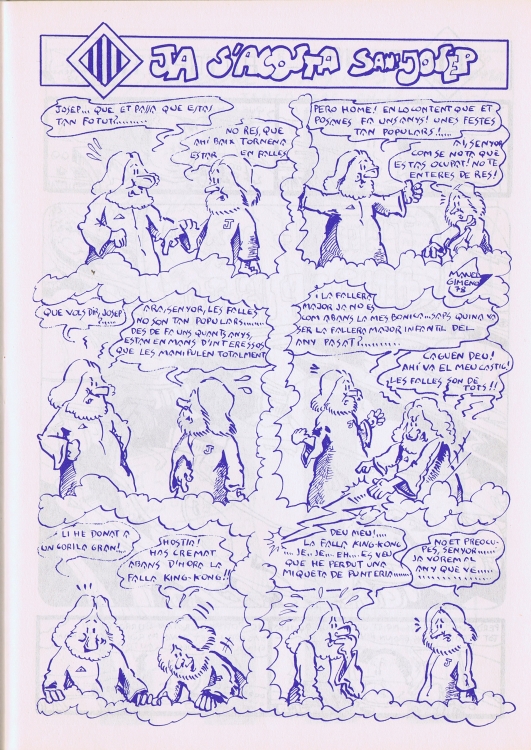 JA S'ACOSTA SANT JOSEP
JOSEP... QUE ET PASSA QUE ESTAS
TAN FOTUT?.........
NO RES, QUE
AHÍ BAIX TORNEN A
ESTAR EN FALLES
PERO HOME! EN LO CONTENT QUE ET
POSAVES FA UNS ANYS! UNES FESTES
TAN POPULARS!.....
AI, SENYOR
COM SE NOTA QUE
ESTAS OCUPAT! NO TE
ENTERES DE RES!
MANEL
GIMENO
78
QUE VOLS DIR, JOSEP
?.....
ARA, SENYOR, LES FALLES
NO SON TAN POPULARS........
DES DE FA UNS QUANTS ANYS,
ESTAN EN MANS D'INTERESSOS
QUE LES MANIPULEN TOTALMENT
I LA FALLERA
MAJOR JA NO ES
COM ABANS LA MES BONICA...SAPS QUINA VA
SER LA FALLERA MAJOR INFANTIL DEL
ANY PASAT?.........
CAGUEN DEU!
AHÍ VA EL MEU CASTIC!
LES FALLES SON DE
TOTS!!
LI HE DONAT A
UN GORILA GRAN!
HOSTIA!
HAS CREMAT
ABANS D'HORA LA
FALLA KING-KONG!!
DEU MEU!....
LA FALLA KING-KONG
...JE, JE... EH.... ES VEU
QUE HE PERDUT UNA
MIQUETA DE PUNTERIA.......
NO ET PREOCU-
PES, SENYOR......
JA VOREM AL
ANY QUE VE.....